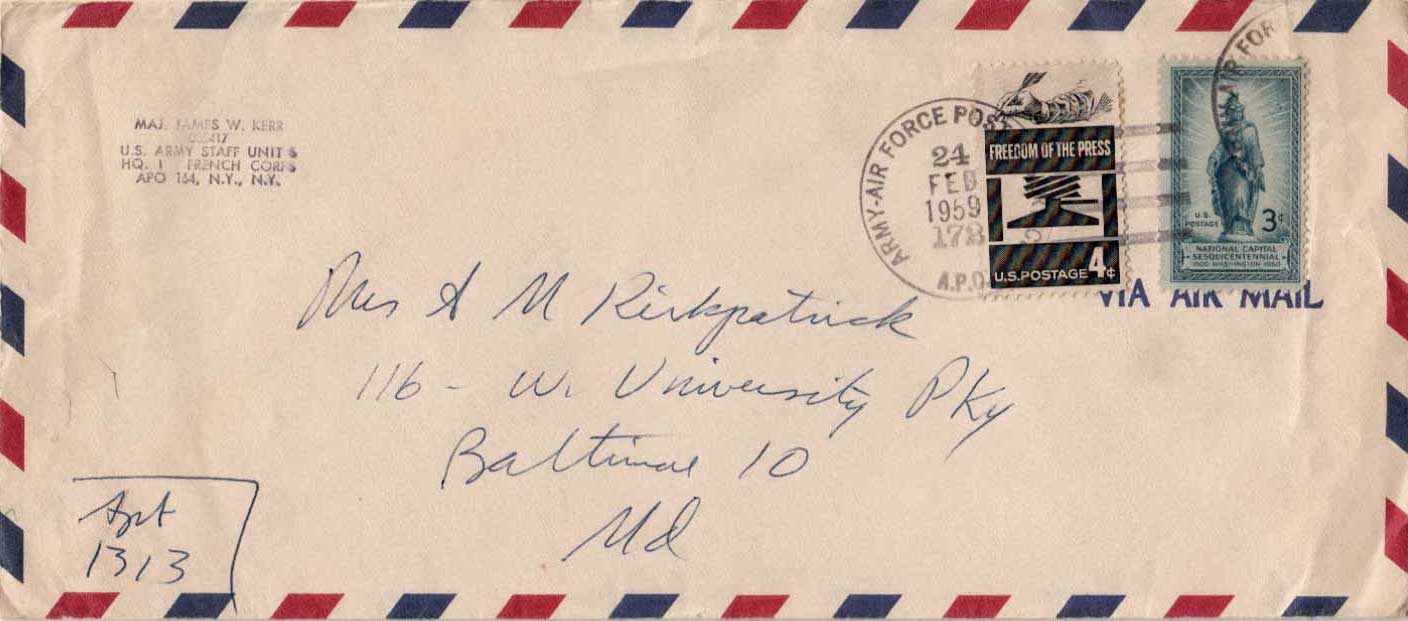 MAJ. JAMES W. KERR
U.S. ARMY STAFF UNIT 6
HQ. 1 FRENCH CORPS
APO 164, N.Y., N.Y.
ARMY-AIR FORCE POST
24
FEB
1959
172
A.P.O.
FREEDOM OF THE PRESS
U.S. POSTAGE 4¢
AIR FOR
U.S.
POSTAGE 3¢
NATIONAL CAPITAL
SESQUICENTENNIAL
1800 WASHINGTON 1950
VIA AIR MAIL
Mrs A M Kirkpatrick
116 - W. University Pky
Baltimore 10
Md
Apt
1313